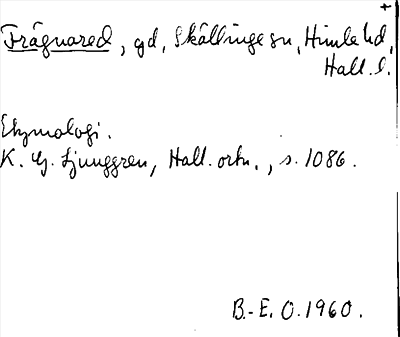 +
Frågnared, gd, Skällinge sn, Himle hd,
Hall. l.
Etymologi.
K. G. Ljunggren, Hall. ortn., s. 1086.
B.-E. O. 1960.